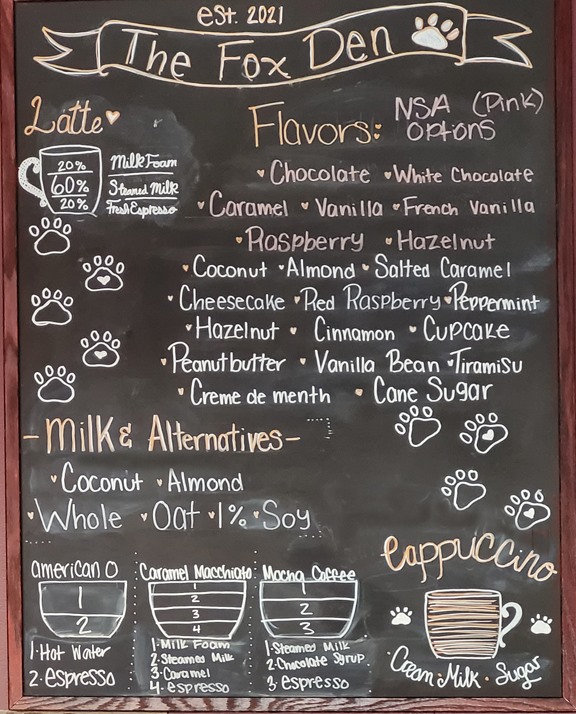 est. 2021
The Fox Den
Latte
20% Milk Foam
60% Steamed Milk
20% Fresh Espresso
Flavors: NSA (Pink) options
Chocolate White Chocolate
Caramel Vanilla French Vanilla
Raspberry Hazelnut
Coconut Almond Salted Caramel
Cheesecake Red Raspberry Peppermint
Hazelnut Cinnamon Cupcake
Peanutbutter Vanilla Bean Tiramisu
Creme de menth Cane Sugar
-Milk & Alternatives-
Coconut Almond
Whole Oat 1% Soy
american O
1
2
1·Hot Water
2·espresso
Caramel Macchiato
1
2
3
4
1·Milk Foam
2·Steamed Milk
3·Caramel
4·espresso
Mocha Coffee
1
2
3
1·Steamed Milk
2·Chocolate Syrup
3·espresso
Cappuccino
Cream·Milk·Sugar